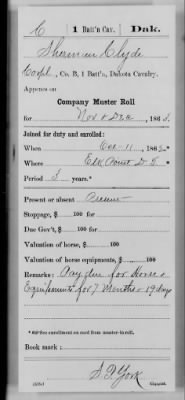 C 1 Batt'n Cav. Dak.
Sherman Clyde
Corpl, Co. B, 1 Batt'n, Dakota Cavalry.
Appears on
Company Muster Roll
for Nov & Dec, 186
Joined for duty and enrolled:
When 11, 1862
Where Elk Point D. T.
Period 3 years.*
Present or absent Present
Stoppage, $ 100 for
Due Gov't, $ 100 for
Valuation of horse, $ 100
Valuation of horse equipments, $ 100
Remarks: Pay due for Horse &
Equipments for 7 months & 19 days
*See enrollment on card from muster-in roll.
Book mark:
S. D. York
Copyist.